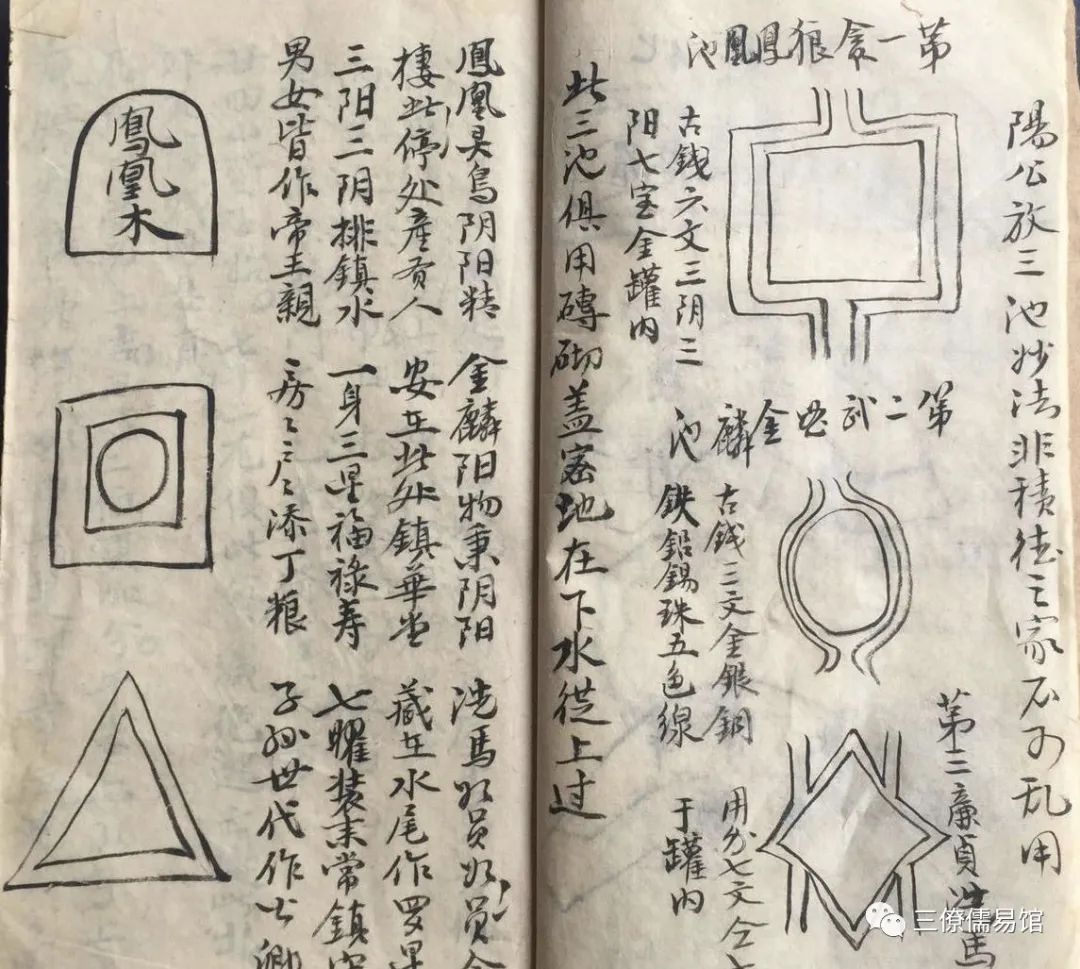 陽公放三池妙法非積德之家不可乱用
第一貪狼鳳凰池
古錢六文三阴三
阳七宝金罐内
第二武曲金麟池
古錢三文金銀銅
鉄鉛錫珠五色線
第三廉貞洗馬
用分七文仝七
于罐内
此三池俱用磚砌盖密地在下水從上过
鳳凰灵鸟阴阳精
棲此停处產贵人
三阳三阴排鎮水
男女皆作帝王親
金麟阳物秉阴阳
安在此处鎮華堂
一身三星福禄寿
房〻户〻添丁粮
洗馬員員
藏在水尾作罗星
七曜装来常鎮
子孙世代作公卿
鳳凰木
三僚儒易馆